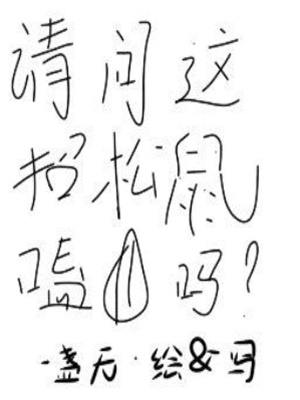 请问这
招松鼠
嗑吗?
·盏无·绘&写